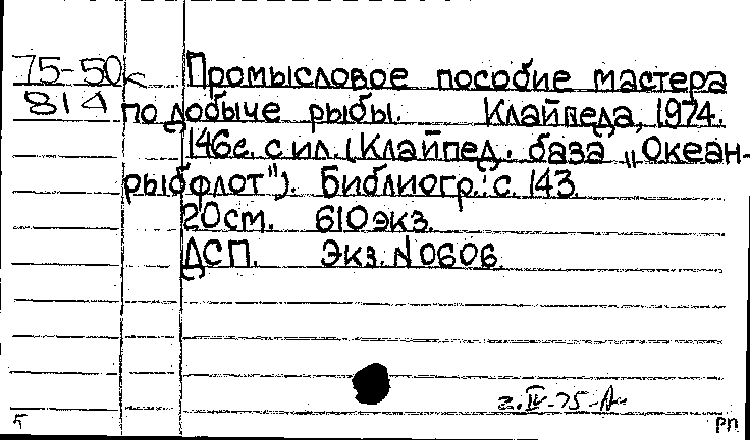 75-50к Промысловое пособие мастера
814 по добыче рыбы. Клайпеда, 1974.
146с. с ил. (Клайпед. база „Океан-
рыбфлот"). Библиогр.: с. 143.
20см. 610 экз.
ДСП. Экз. N 0606.
РП